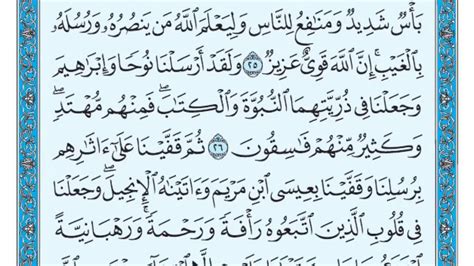 بَأْسٌ شَدِيدٌ وَمَنَٰفِعُ لِلنَّاسِ وَلِيَعْلَمَ ٱللَّهُ مَن يَنصُرُهُۥ وَرُسُلَهُۥ
بِٱلْغَيْبِ ۚ إِنَّ ٱللَّهَ قَوِىٌّ عَزِيزٌ ٢٥ وَلَقَدْ أَرْسَلْنَا نُوحًا وَإِبْرَٰهِيمَ
وَجَعَلْنَا فِى ذُرِّيَّتِهِمَا ٱلنُّبُوَّةَ وَٱلْكِتَٰبَ ۖ فَمِنْهُم مُّهْتَدٍ ۖ
وَكَثِيرٌ مِّنْهُمْ فَٰسِقُونَ ٢٦ ثُمَّ قَفَّيْنَا عَلَىٰٓ ءَاثَٰرِهِم
بِرُسُلِنَا وَقَفَّيْنَا بِعِيسَى ٱبْنِ مَرْيَمَ وَءَاتَيْنَٰهُ ٱلْإِنجِيلَ ۖ وَجَعَلْنَا
فِى قُلُوبِ ٱلَّذِينَ ٱتَّبَعُوهُ رَأْفَةً وَرَحْمَةً ۚ وَرَهْبَانِيَّةً